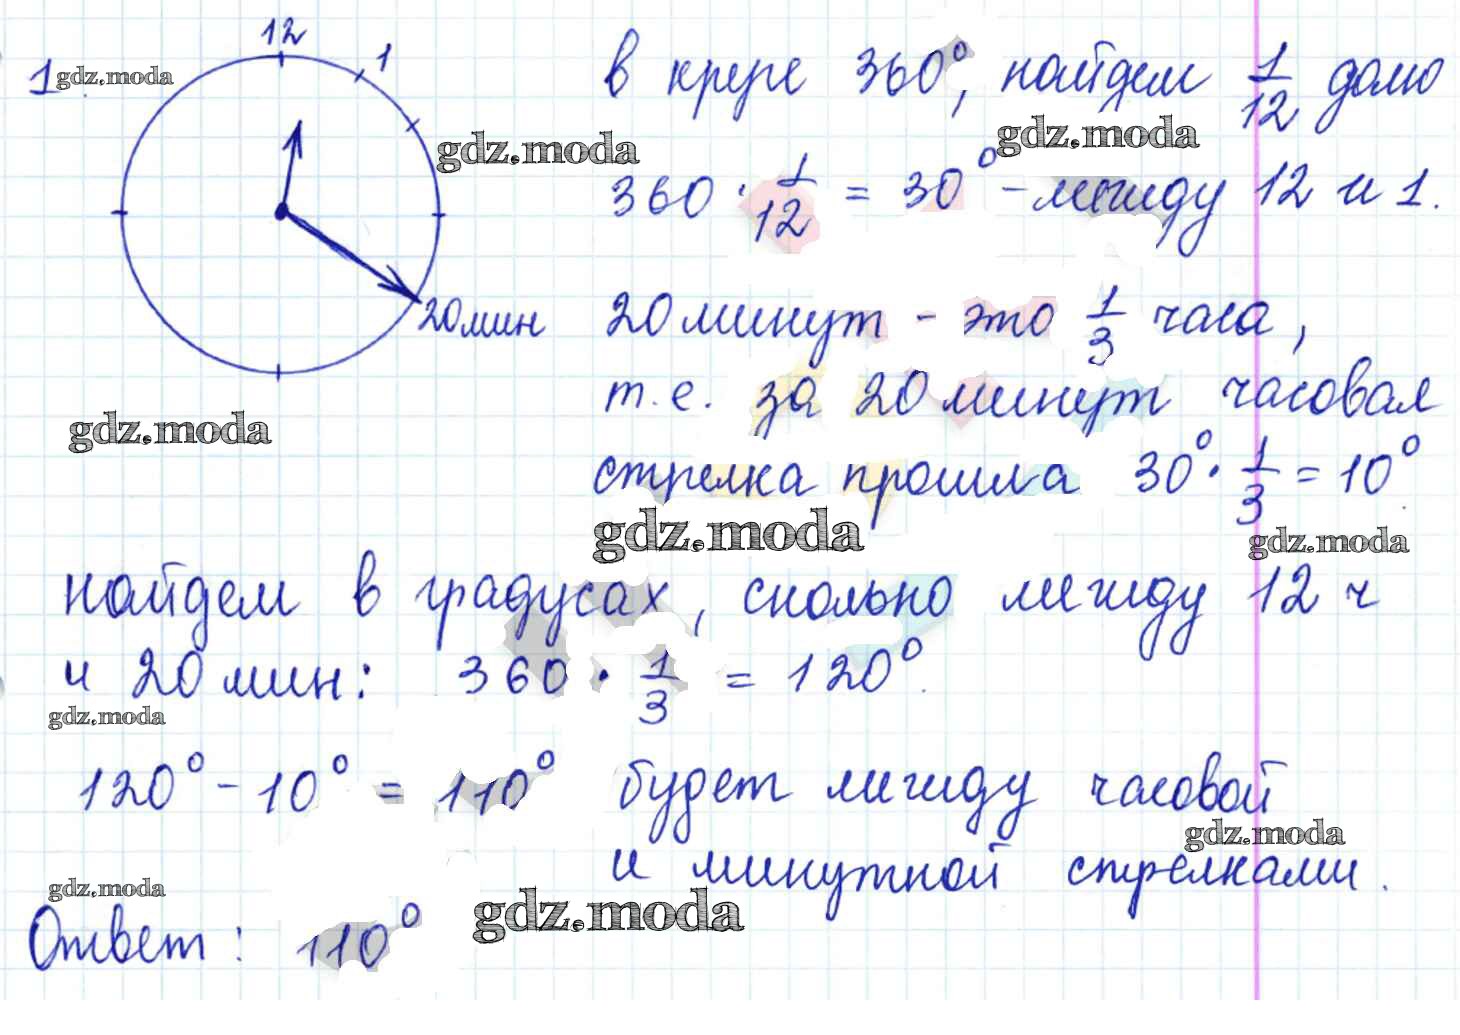 12
1
1. gdz.moda
в круге 360°, найдем 1/12 долю
gdz.moda
gdz.moda
360 · 1/12 = 30° - между 12 и 1.
20 мин
20 минут - это 1/3 часа,
т.е. за 20 минут часовая
gdz.moda
стрелка прошла 30° · 1/3 = 10°
gdz.moda
gdz.moda
найдем в градусах, сколько между 12 ч
и 20 мин: 360 · 1/3 = 120°.
gdz.moda
120° - 10° = 110° будет между часовой
gdz.moda
и минутной стрелками.
gdz.moda
gdz.moda
Ответ: 110°